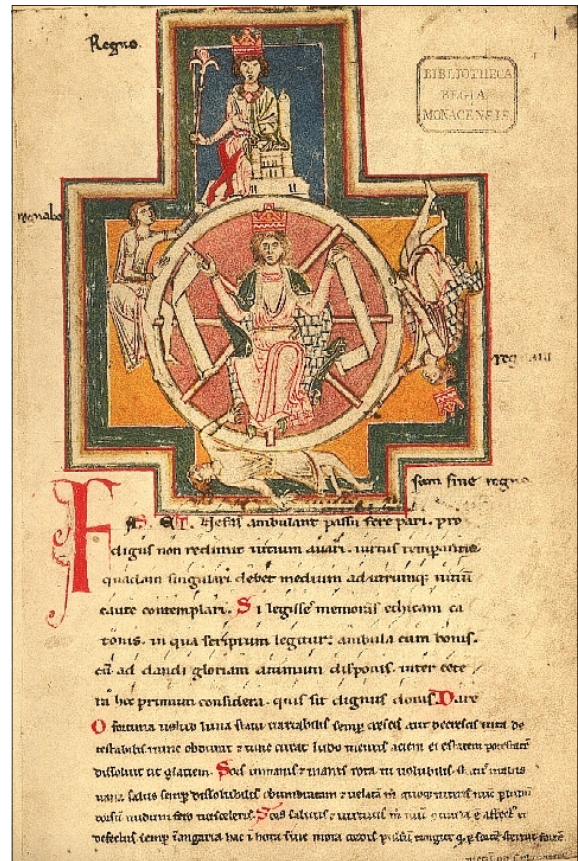 Regno
BIBLIOTHECA
REGIA
MONACENSIS.
regnabo
regnaui
sum sine regno
FAS ET Nefas ambulant passu fere pari. pro
digus non redimit uitium auari. uirtus temperantie
quadam singulari debet medium ad utrumq; uitiū
caute contemplari. Si legisse memoras ethicam ca
tonis. in qua scriptum legitur: ambula cum bonis.
cū ad dandi gloriam animum disponis. inter cete
ra hoc primum considera. quis sit dignus donis. Dare
O fortuna uelud luna statu uariabilis semp crescis aut decrescis uita de
testabilis nunc obdurat et tunc curat ludo mentis aciem egestatem potestatē
dissoluit ut glaciem. Sors inmanis et inanis rota tu uolubilis status malus
uana salus semp dissolubilis obumbratam et uelatā m
dorsū nudum fero tui sceleris. Sors salutis et uirtutis m
defectus semp in angaria hac in hora sine mora